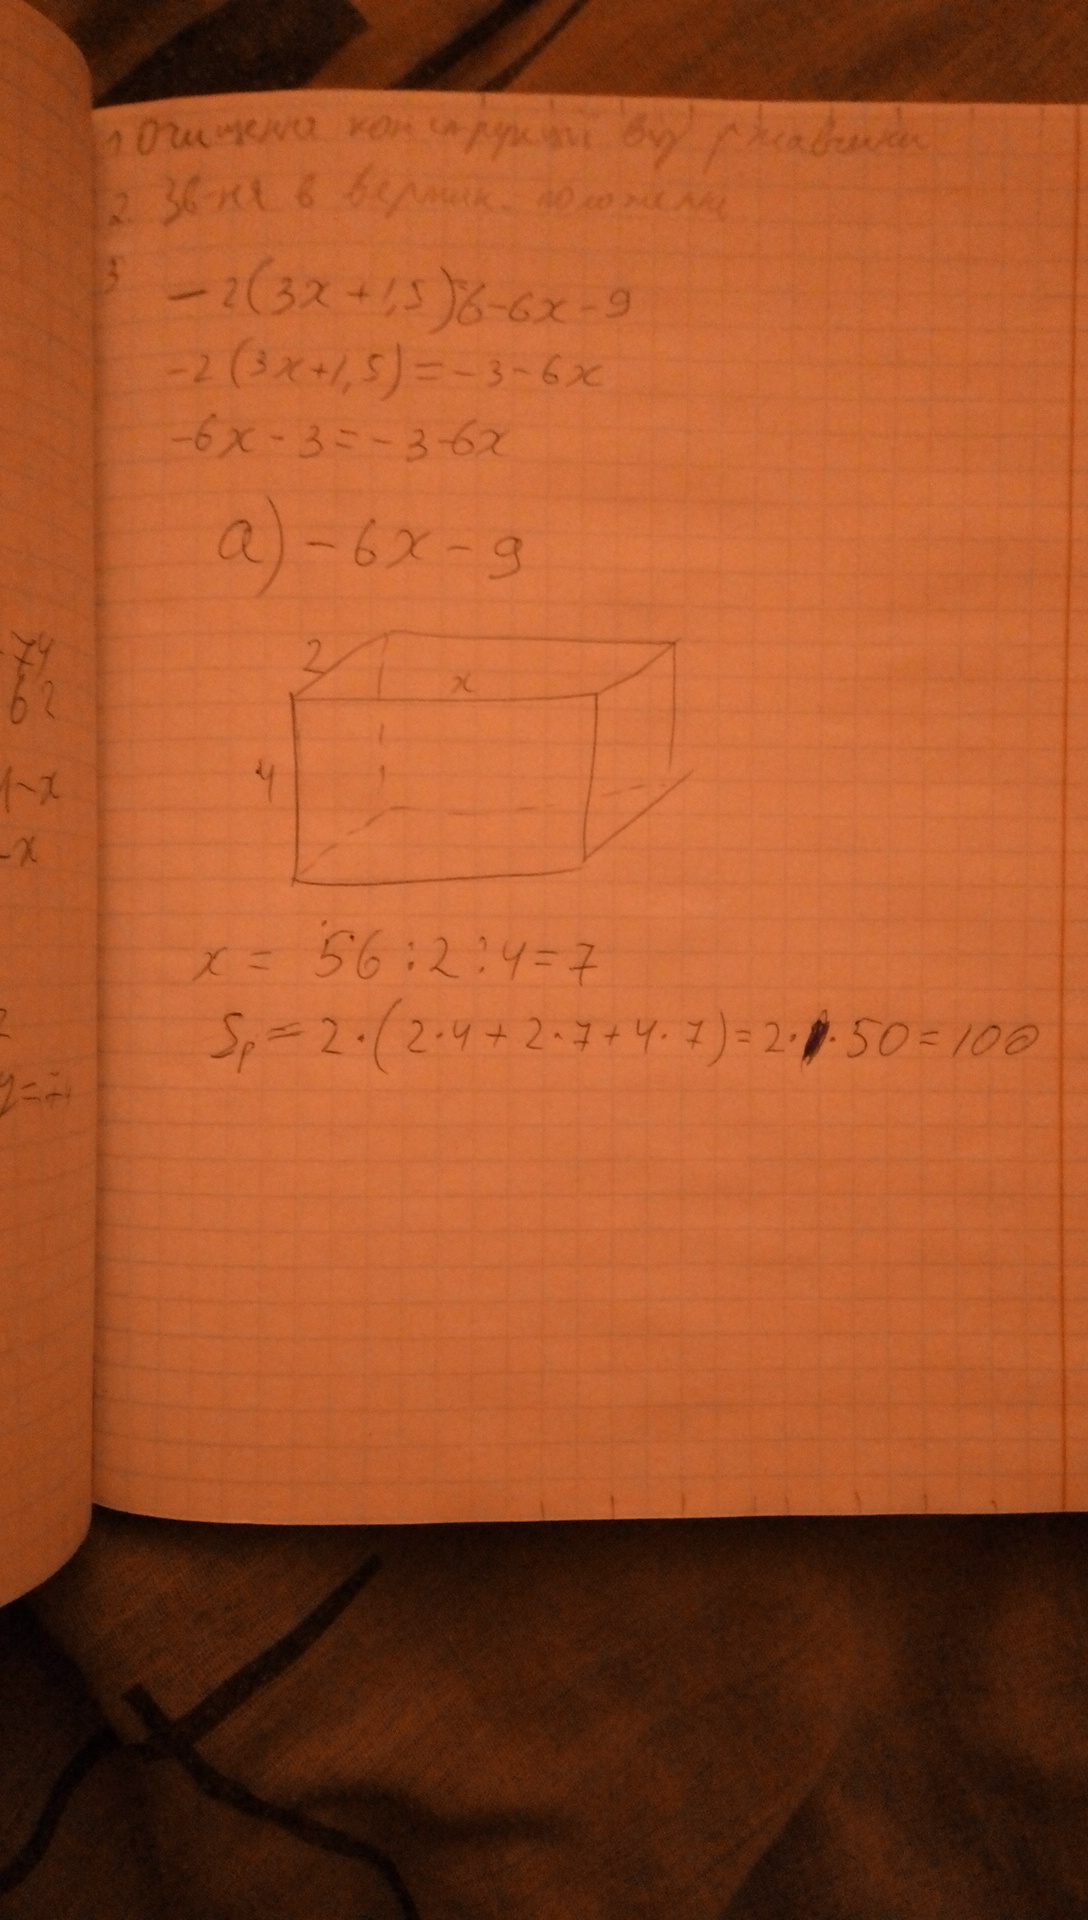 74
62
1-x
-x
2
y=7
1 Очищення конструкції від ржавчини
2 Зв-ня в вертик. положенні
3
-2(3x+1,5)=6-6x-9
-2(3x+1,5)=-3-6x
-6x-3=-3-6x
a) -6x-9
2
x
4
x = 56:2:4=7
Sp = 2·(2·4+2·7+4·7)=2·50=100